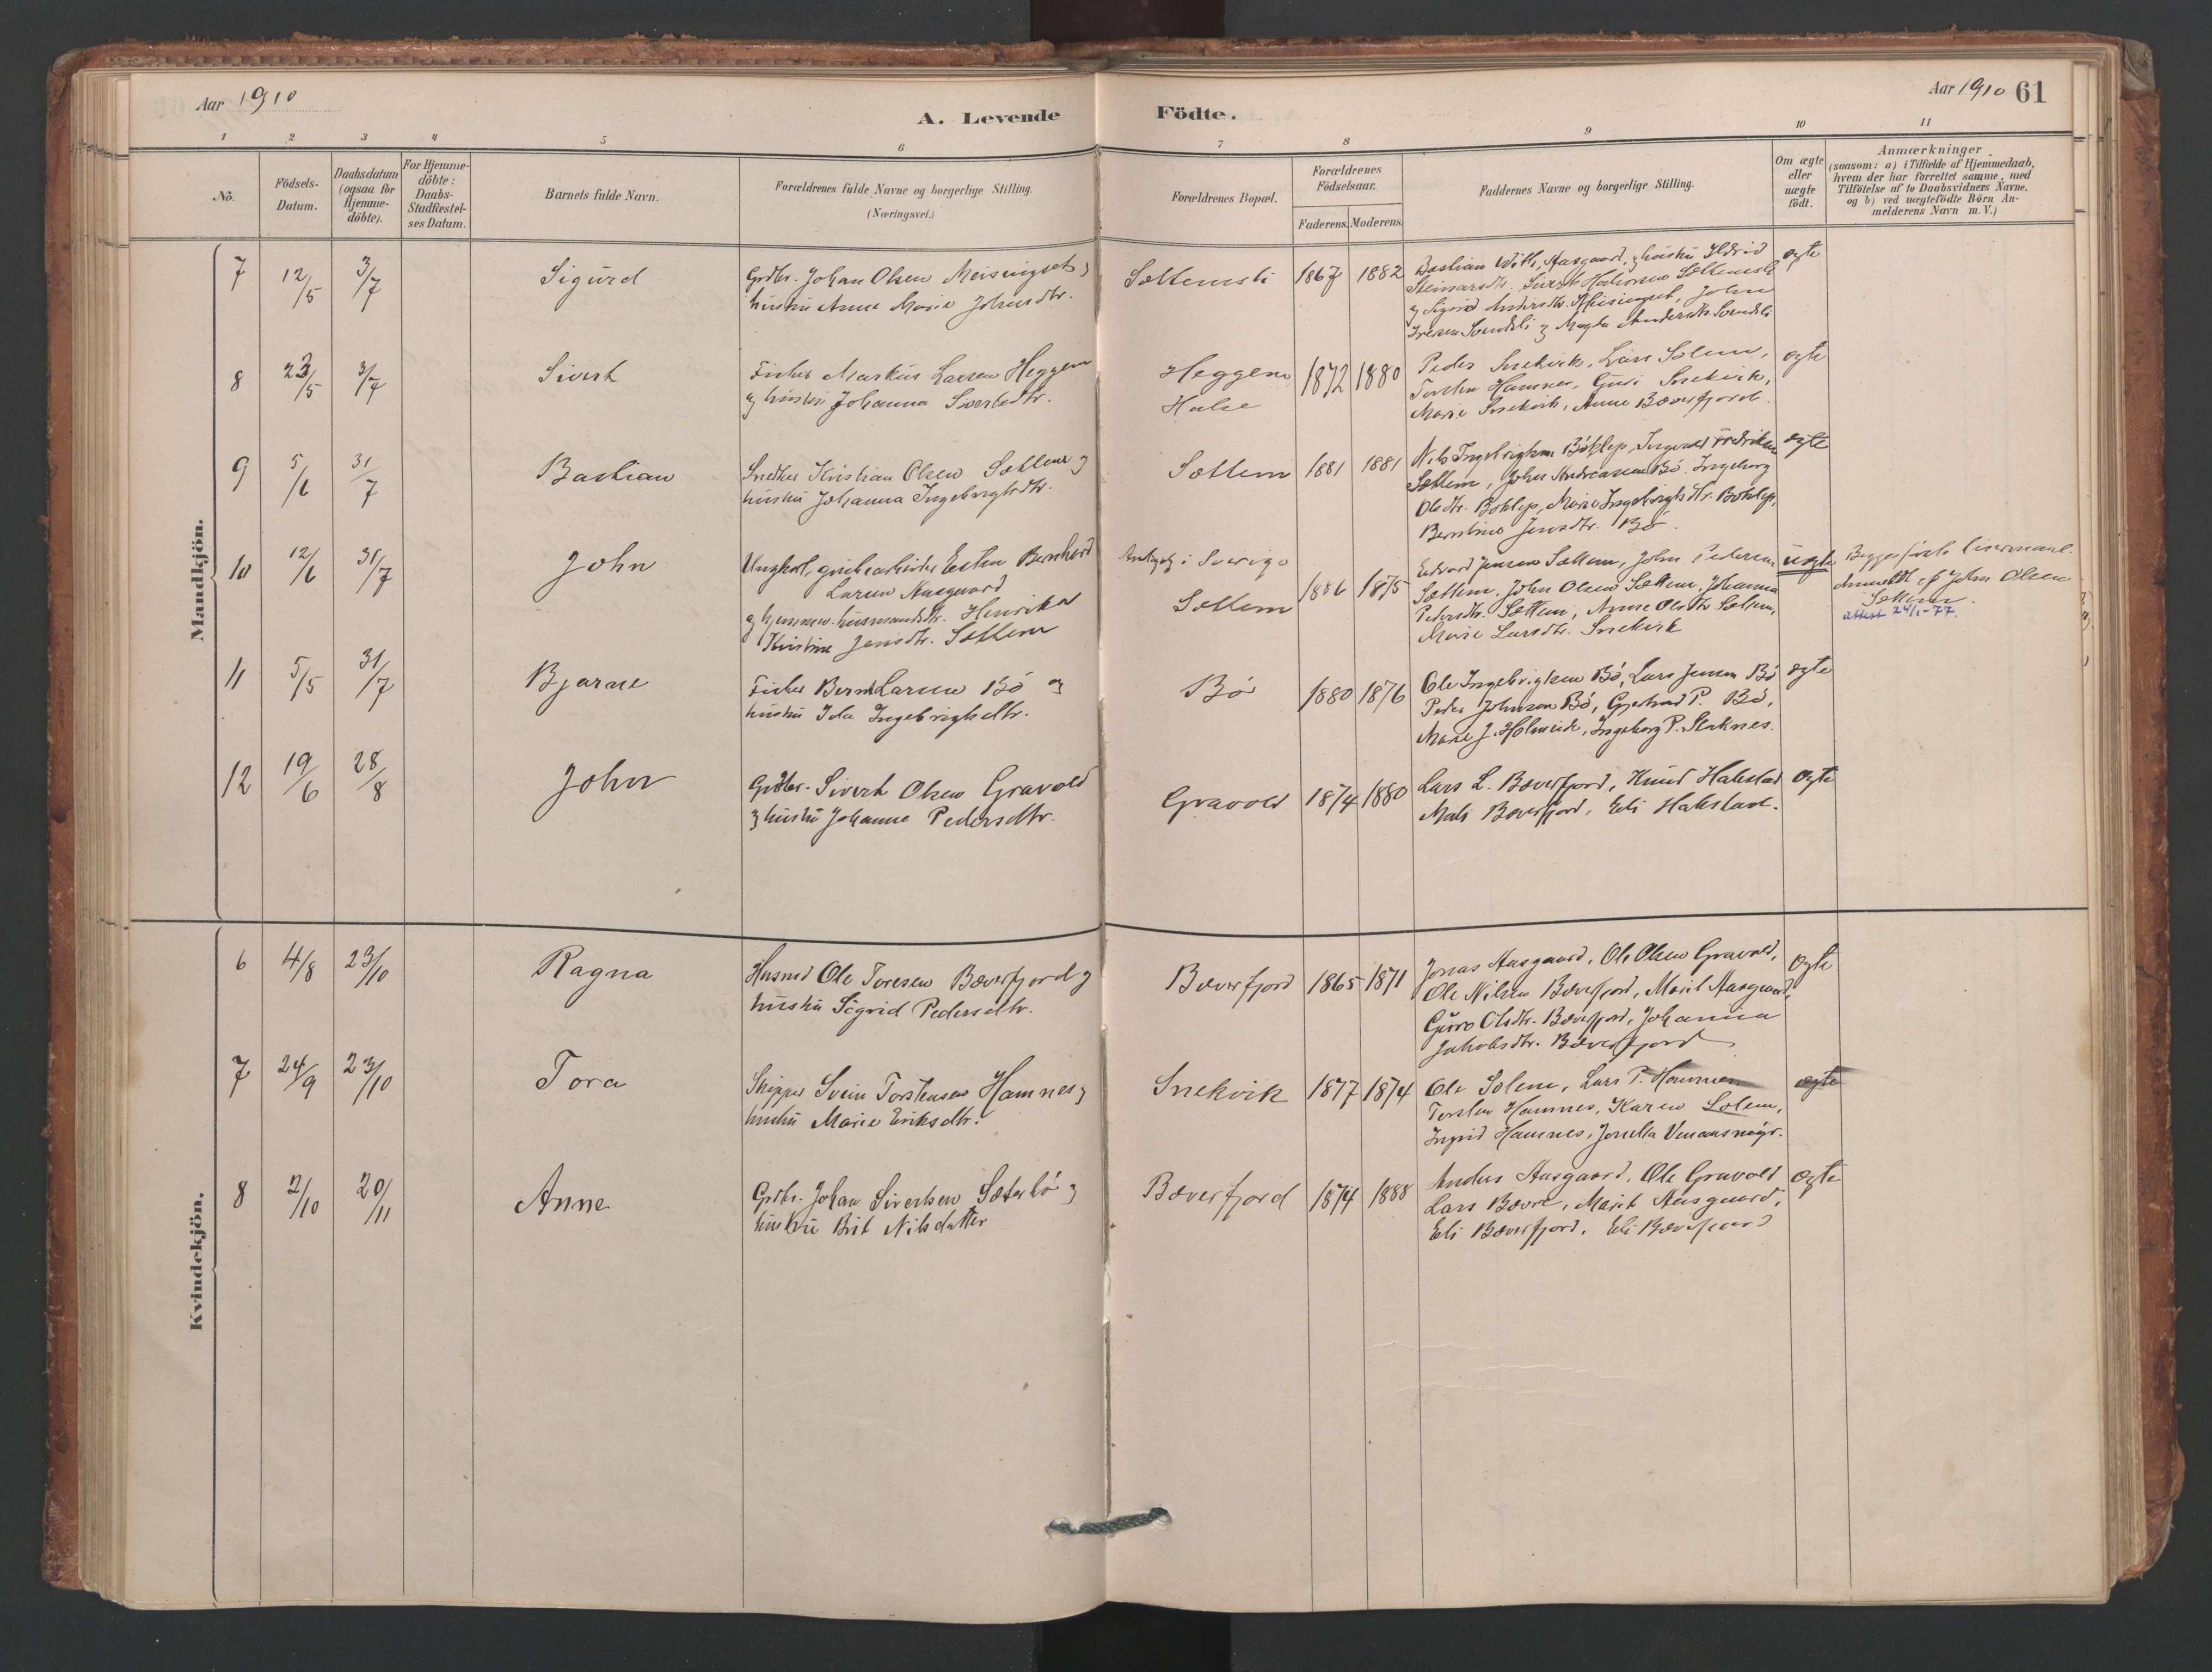 Aar 1910
A. Levende Födte.
Aar 1910 61
1 2 3 4 5 6 7 8 9 10 11
No.
Födsels-Datum.
Daabsdatum (ogsaa for Hjemme-döbte).
For Hjemme-döbte: Daabs-Stadfæstel-ses Datum.
Barnets fulde Navn.
Forældrenes fulde Navne og borgerlige Stilling.
(Næringsvei.)
Forældrenes Bopæl.
Forældrenes Födselsaar.
Faderens. Moderens.
Faddernes Navne og borgerlige Stilling.
Om ægte eller uægte födt.
Anmærkninger
(saasom: a) i Tilfælde af Hjemmedaab,
hvem der har forrettet samme, med
Tilföielse af to Daabsvidners Navne.
og b) ved uægtefödte Börn An-
melderens Navn m. V.)
Mandkjön.
7 12/5 3/7 Sigurd
Grdbr. Johan Olsen Meisingset og
hustru Anne Marie Johnsdtr.
Settemsli 1867 1882
Bastian Aasgaard, hustru Ildrid
Steinarsdtr. Sivert Settemsli
og Sigrid Andersdtr. Meisingset, John
Svendsli og Magda Svendsli
ægte
8 23/5 3/7 Sivert
Fisker Markus Larsen Heggem
og hustru Johanna Sivertsdtr.
Heggem
Halse
1872 1880
Peder Snekvik, Lars Solem,
Torsten Hamnes, Guri Snekvik,
Marie Snekvik, Anne Bæverfjord.
ægte
9 5/6 31/7 Bastian
Snedker Kristian Olsen Settem og
hustru Johanna Ingebrigtsdtr.
Settem 1881 1881
Nils Ingebrigtsen Böklep, Ingeborg
Settem, John Andreassen Bö, Ingeborg
Olsdtr. Böklep, Marie Ingebrigtsdtr. Böklep,
Berntine Jensdtr. Bö.
ægte
10 12/6 31/7 John
Ungkarl, grubearbeider Esten Bernhard
Larsen Aasgaard
og hjemmev. husmandsdtr. Henrika
Kristine Jensdtr. Settem
i Sverige
Settem
1886 1875
Edvard Jensen Settem, John Pedersen
Settem, John Olsen Settem, Johanna
Pedersdtr. Settem, Anne Olsdtr. Settem,
Marie Larsdtr. Snekvik
uægte
Begges første leiermaal.
Anmeldt af John Olsen
Settem.
attest 24/1-77.
11 5/5 31/7 Bjarne
Fisker Bernt Larsen Bö og
hustru Ida Ingebrigtsdtr.
Bö 1880 1876
Ole Ingebrigtsen Bö, Lars Jensen Bö
Peder Johnsen Bö, Gjertrud P. Bö,
Marie J. Holmeide, Ingeborg P. Stoknes.
ægte
12 19/6 28/8 John
Grdbr. Sivert Olsen Gravold
og hustru Johanne Pedersdtr.
Gravold 1874 1880
Lars L. Bæverfjord, Knud Halsstad
Mali Bæverfjord, Eli Halsstad.
ægte
Kvindekjön.
6 4/8 23/10 Ragna
Husmd Ole Toresen Bæverfjord og
hustru Sigrid Pedersdtr.
Bæverfjord 1865 1871
Jonas Aasgaard, Ole Olsen Gravold,
Ole Nilsen Bæverfjord, Marit Aasgaard,
Guro Olsdtr. Bæverfjord, Johanna
Jakobsdtr. Bæverfjord
ægte
7 24/9 23/10 Tora
Skipper Svein Torstensen Hamnes og
hustru Marie Eriksdtr.
Snekvik 1877 1874
Ole Solem, Lars P. Hamnes
Torsten Hamnes, Karen Solem,
Ingrid Hamnes, Jonetta
ægte
8 2/10 20/11 Anne
Grdbr. Johan Sivertsen Sæterbö og
hustru Brit Nilsdatter
Bæverfjord 1874 1888
Anders Aasgaard, Ole Gravold
Lars Bævre, Marit Aasgaard,
Eli Bæverfjord, Eli Bæverfjord
ægte